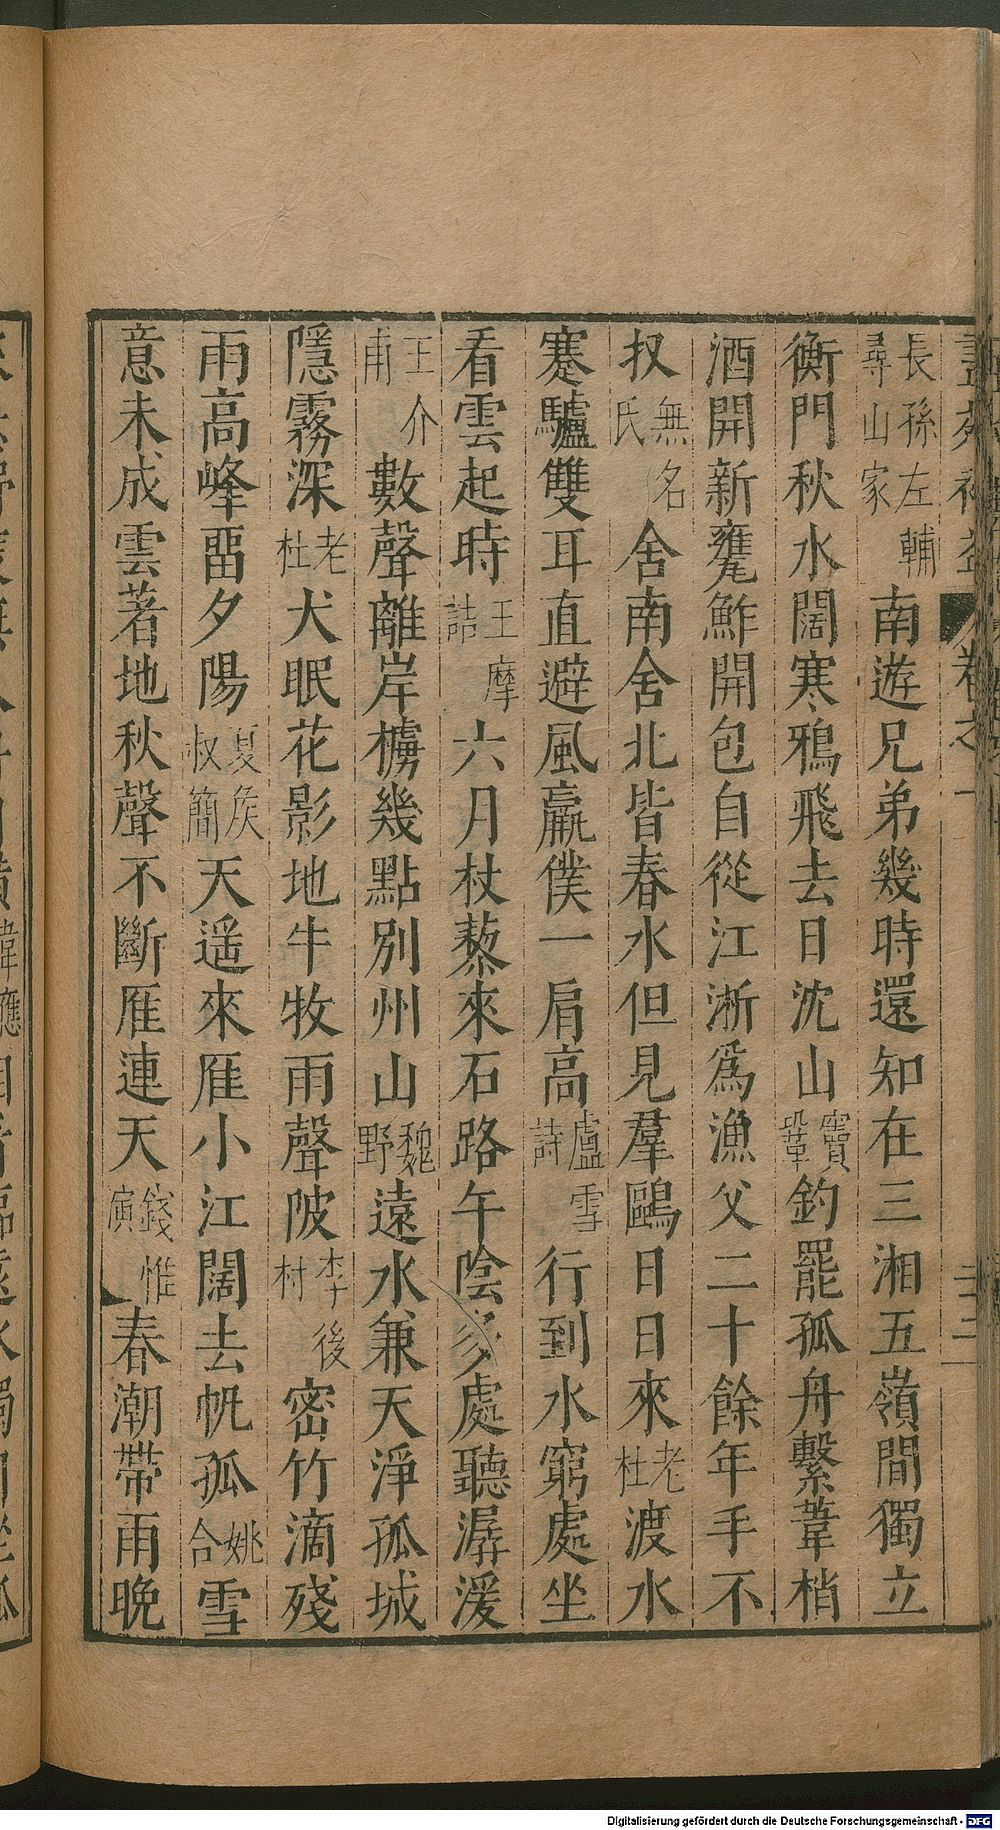 長孫左輔尋山家南遊兄弟幾時還知在三湘五嶺間獨立
衡門秋水闊寒鴉飛去日沈山竇鞏釣罷孤舟繫葦梢
酒開新甕鮓開包自從江淅爲漁父二十餘年手不
扠無名氏舍南舍北皆春水但見羣鷗日日來老杜渡水
蹇驢雙耳直避風羸僕一肩高盧雪詩行到水窮處坐
看雲起時王摩詰六月杖藜來石路午陰多處聽潺湲
王介甫數聲離岸櫓幾點別州山魏野遠水兼天淨孤城
隱霧深老杜犬眠花影地牛牧雨聲陂李後村密竹滴殘
雨高峰畱夕陽夏侯叔簡天遥來雁小江闊去帆孤姚合雪
意未成雲著地秋聲不斷雁連天錢惟演春潮帶雨晚
Digitalisierung gefördert durch die Deutsche Forschungsgemeinschaft - DFG